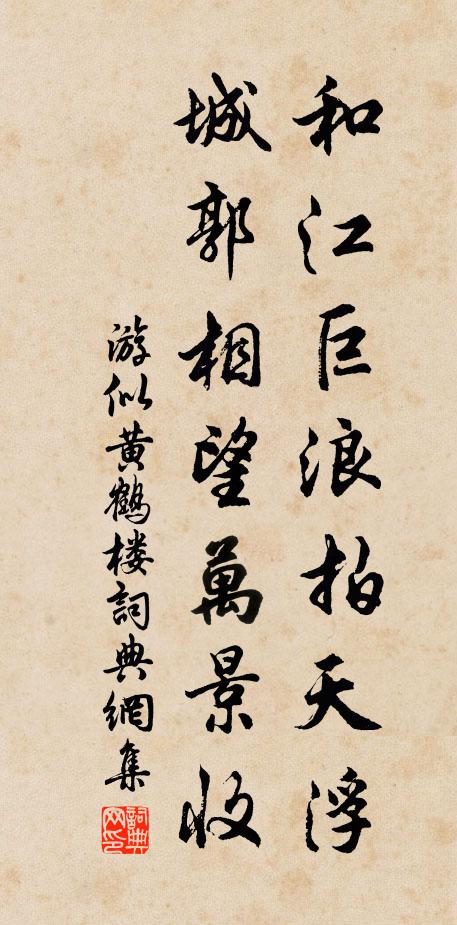 和江巨浪拍天浮
城郭相望萬景收
游似黄鶴楼詞典網集
詞典网印